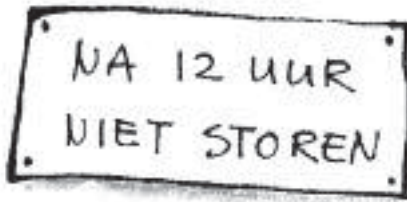 NA 12 UUR
NIET STOREN